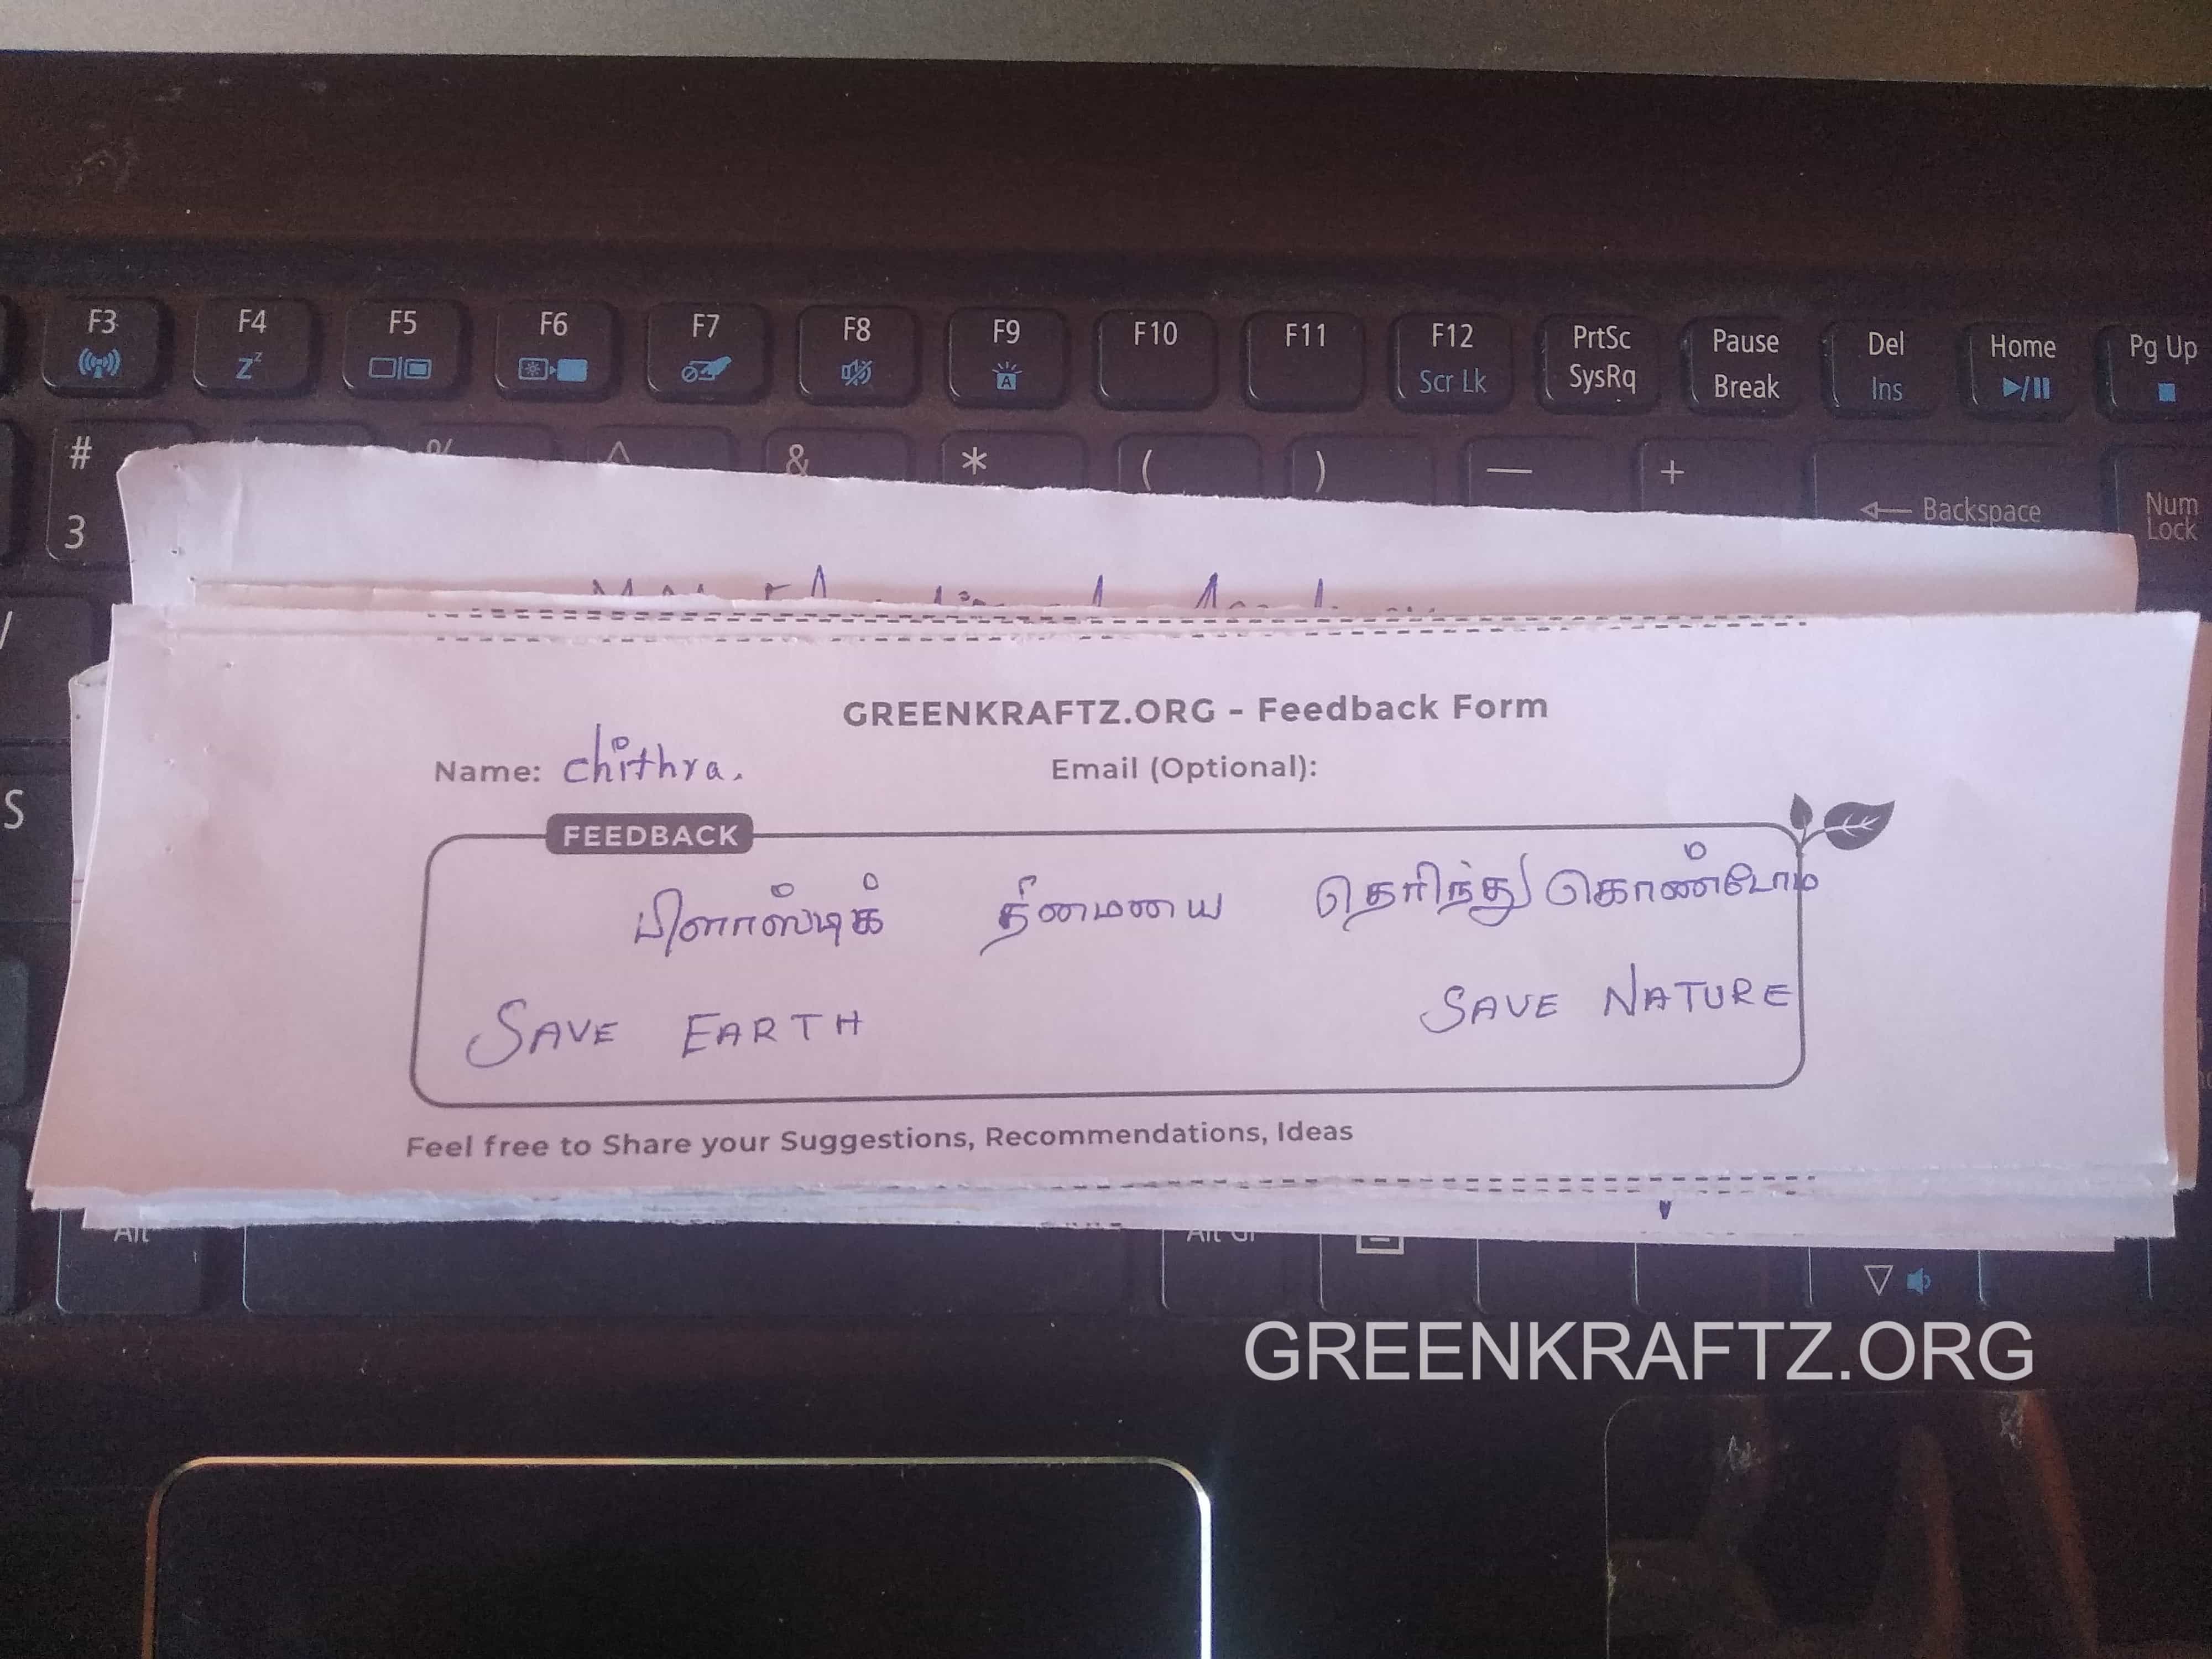 F3 F4 F5 F6 F7 F8 F9 F10 F11 F12 PrtSc Pause Del Home Pg Up
Z Scr Lk SysRq Break Ins
# % ^ & * ( ) — + Backspace Num
3 Lock
GREENKRAFTZ.ORG - Feedback Form
Name: Chithra. Email (Optional):
S
FEEDBACK
பிளாஸ்டிக் தீமையை தெரிந்து கொண்டோம்
SAVE EARTH SAVE NATURE
Feel free to Share your Suggestions, Recommendations, Ideas
Alt Alt Gr
GREENKRAFTZ.ORG